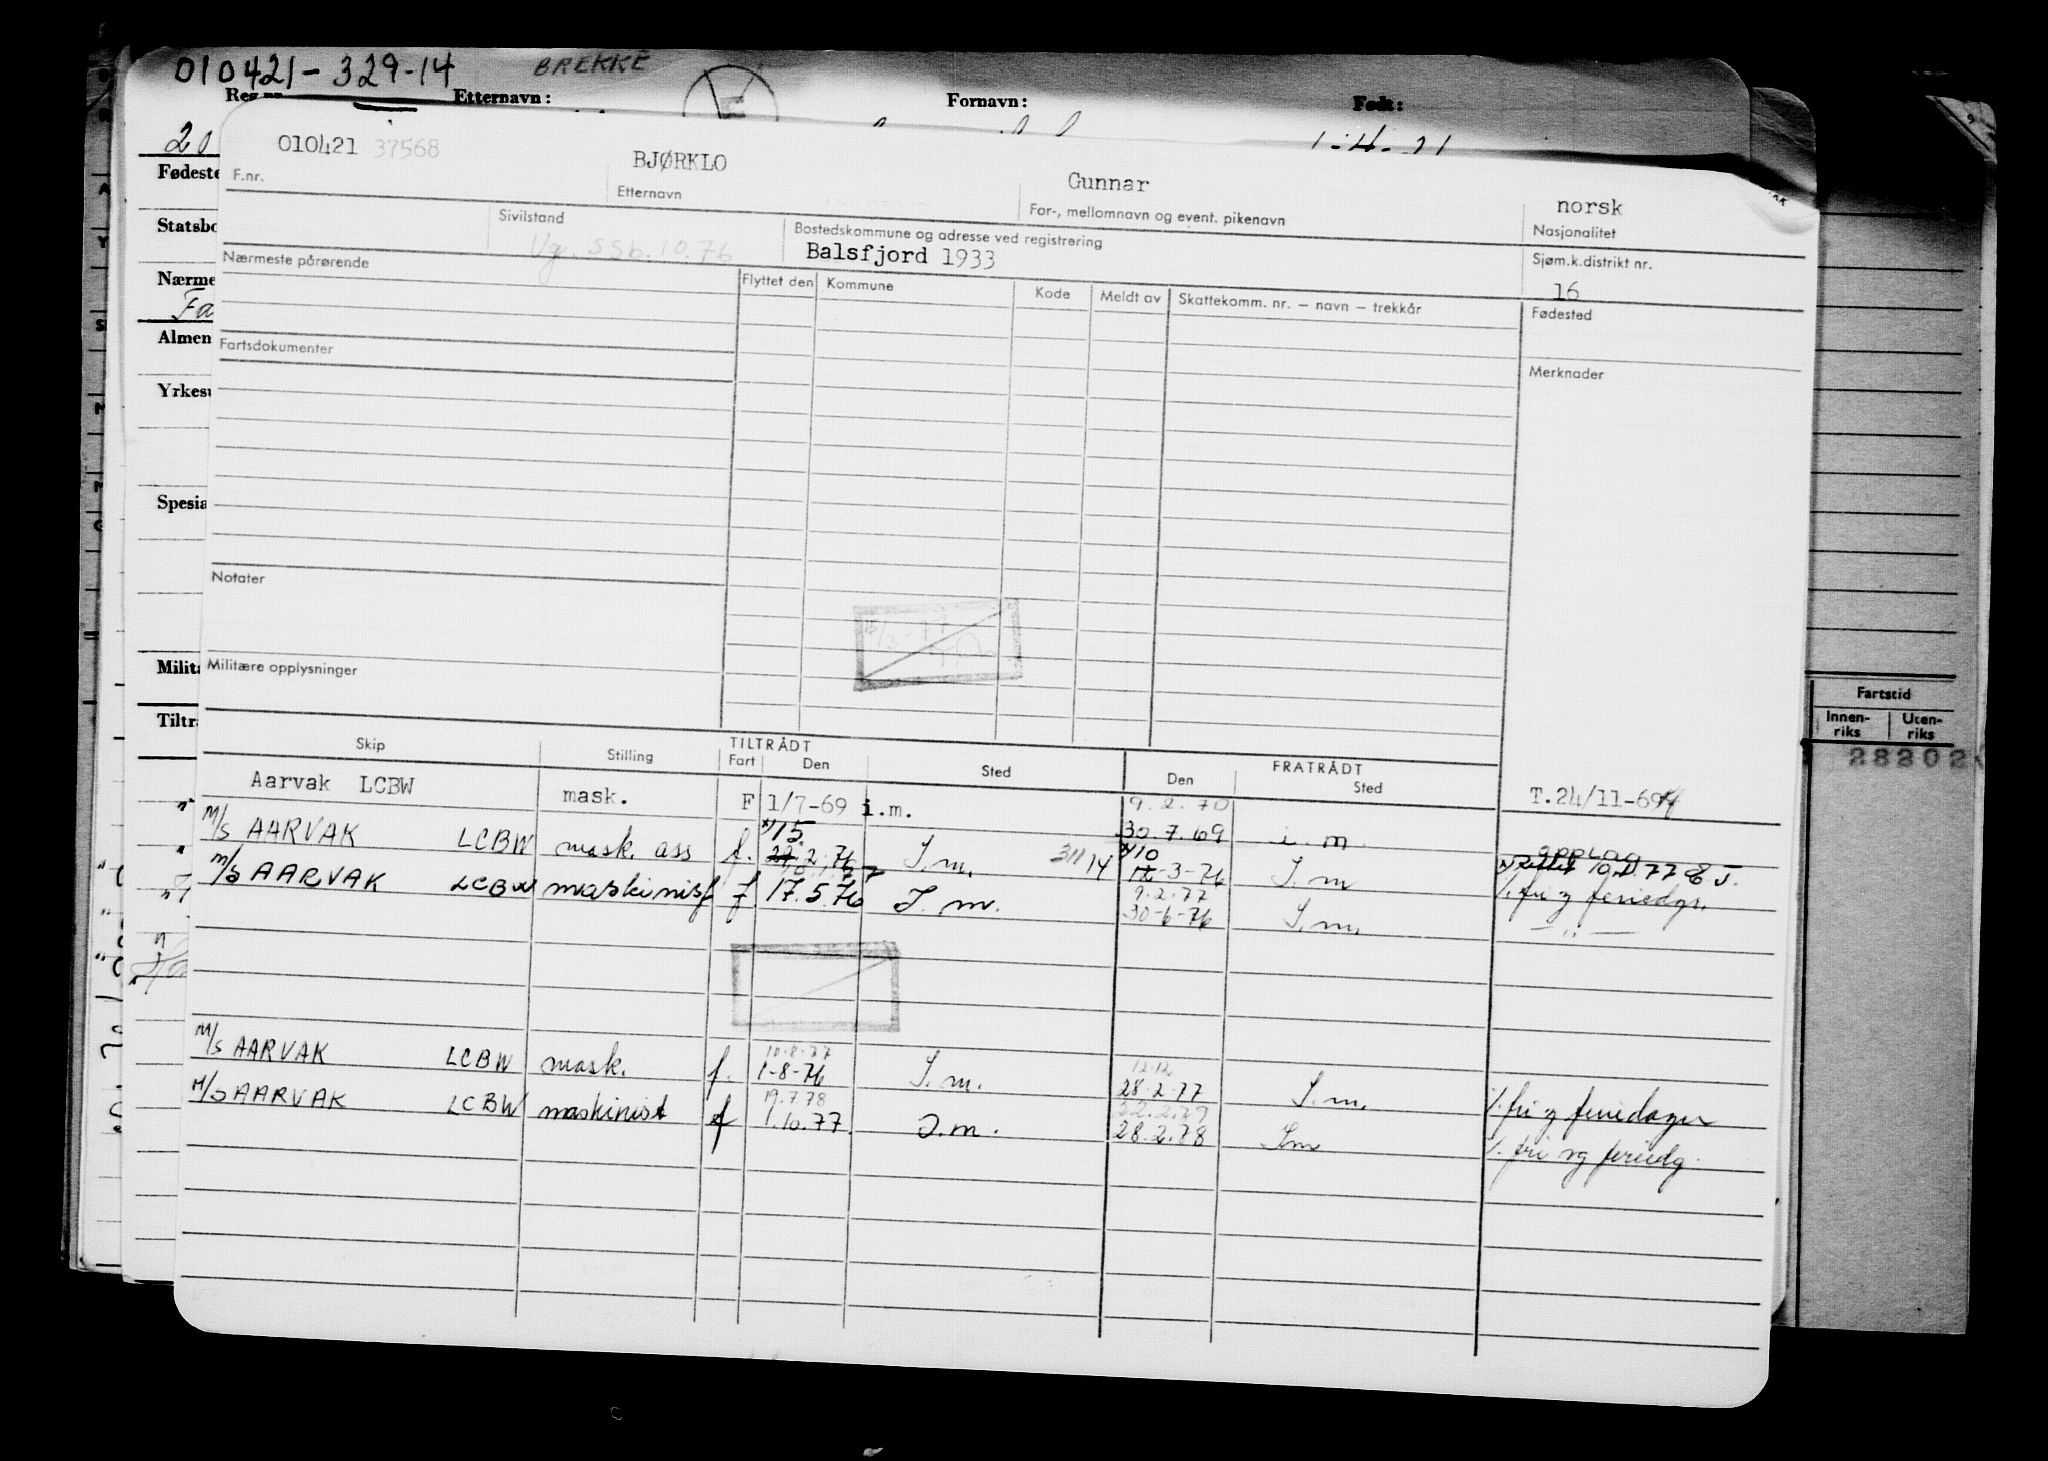 010421-329-14 BREKKE
Reg.nr. Etternavn: Fornavn: Født:
20 1-4-21
010421 37568 BJØRKLO Gunnar norsk
F.nr. Etternavn For-, mellomnavn og event. pikenavn Nasjonalitet
Fødeste
Statsbo
Nærme
Fa
Almen
Yrkesu
Spesia
Milita
Tiltr
Sivilstand Bostedskommune og adresse ved registrering Sjøm.k.distrikt nr.
Vg. SSb. 10.76 Balsfjord 1933 16
Nærmeste pårørende Flyttet den Kommune Kode Meldt av Skattekomm. nr. – navn – trekkår Fødested
Fartsdokumenter Merknader
Notater
15/3-77
Militære opplysninger
Fartstid
Innen-riks Uten-riks
28202
Skip Stilling TILTRÅDT FRATRÅDT
Fart Den Sted Den Sted
Aarvak LCBW mask. F 1/7-69 i.m. 9.2.70 T.24/11-69
M/S AARVAK LCBW mask. ass f. 15. 2.76 I.m. 31114 30.7.69 i.m.
10 -3-76 I.m opplag 10.2.77
M/S AARVAK LCBW maskinist f 17.5.76 I.m. 9.2.77 /. fri og feriedgr.
30-6-76 I.m. — " —
10.8.77 12.12
M/S AARVAK LCBW mask. f. 1-8-76 I.m. 28.2.77 I.m. /. fri og feriedager
19.7.78 22.2.79
M/S AARVAK LCBW maskinist f 1.10.77. I.m. 28.2.78 Im /. fri og feriedg.